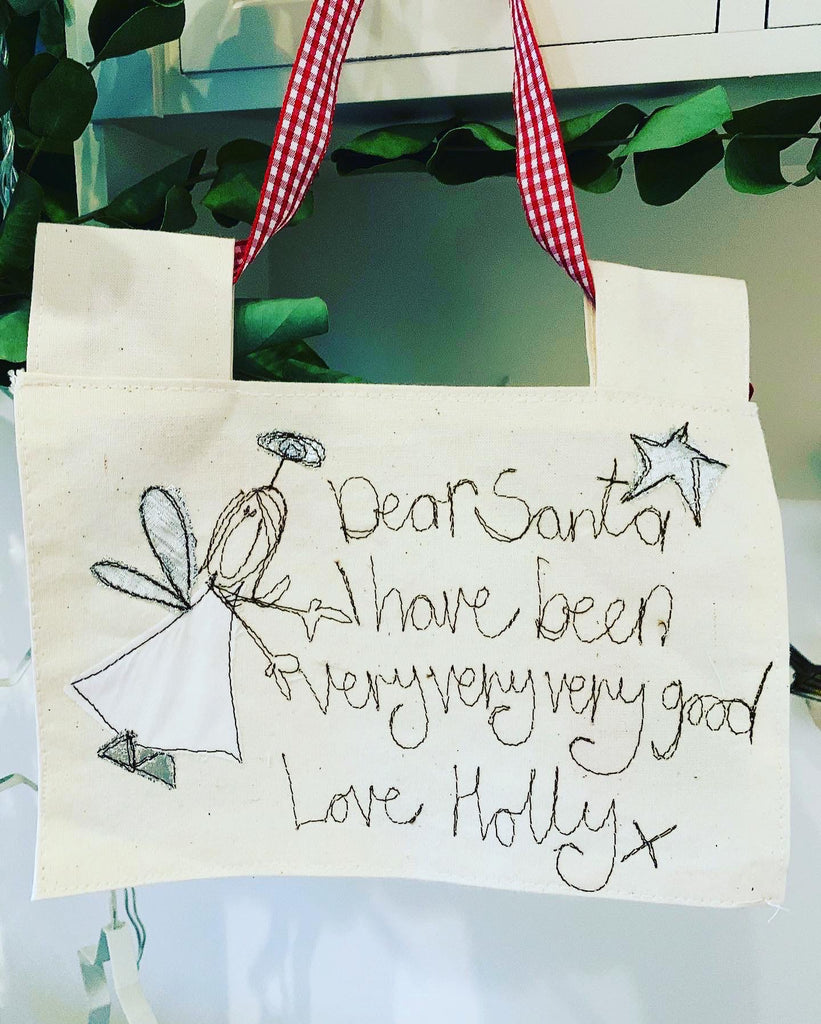 Dear Santa
I have been
very very very good
Love Holly x